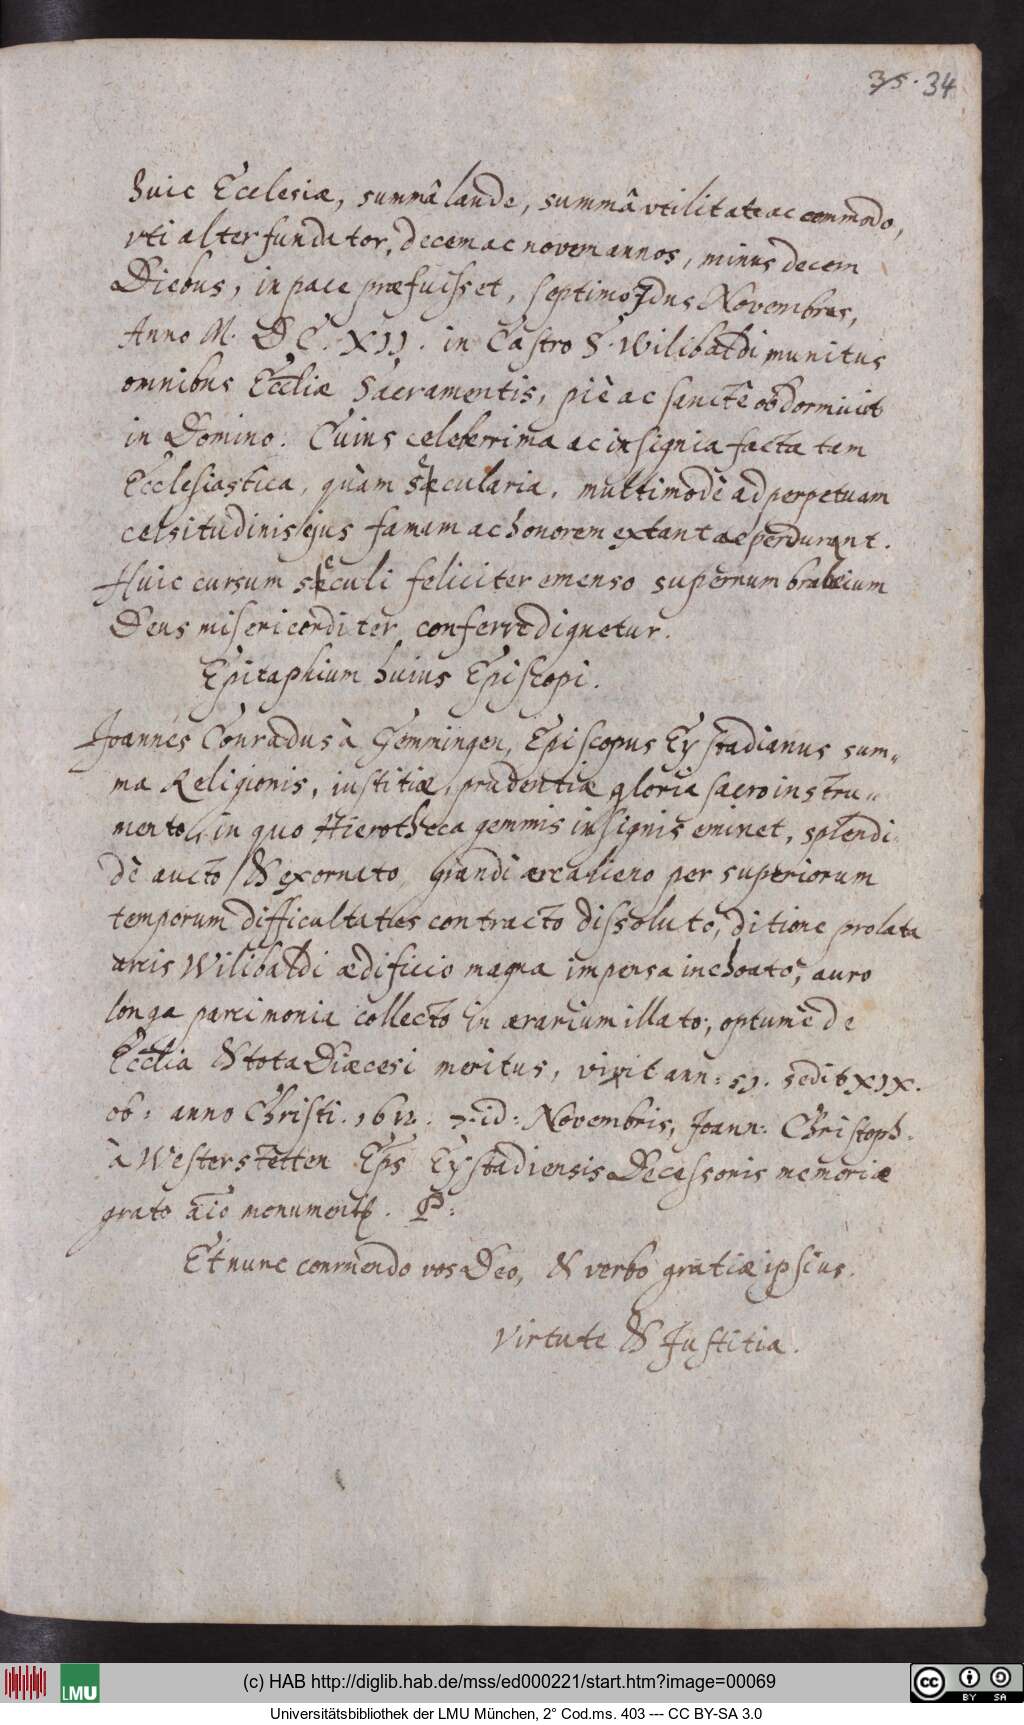 35. 34
huic Ecclesiæ, summâ laude, summâ vtilitate ac commodo,
vti alter fundator, decem ac novem annos, minus decem
Diebus, in pace præfuisset, septimo Idus Novembres,
Anno M. D C. XII. in Castro S. Wilibaldi munitus
omnibus Eccliæ Sacramentis, piè ac sanctè obdormivit
in Domino. Cuius celeberrima ac insignia facta tam
Ecclesiastica, quàm sæcularia, multimodè ad perpetuam
celsitudinis ejus famam ac honorem extant ac perdurant.
Huic cursum sæculi feliciter emenso supernum brabeium
Deus misericorditer conferre dignetur.
Epitaphium huius Episcopi.
Joannes Conradus à Gemmingen, Episcopus Eystadianus sum„
ma Religionis, iustitiæ, prudentiæ gloria sacro instru„
mento, in quo Hierotheca gemmis insignis eminet, splendi
dè aucto & exornato, grandi ære alieno per superiorum
temporum difficultates contracto dissoluto, ditione prolata
arcis Wilibaldi ædificio magna impensa inchoato, auro
longa parcimonia collecto in ærarium illato, optumè de
Ecclia & tota Diæcesi meritus, vixit ann: 51. sedit XIX.
ob: anno Christi. 1612. 7. id: Novembris, Joann: Christoph.
à Westerstetten Eps Eystadiensis Decessoris memoriæ
grato aio monument. P:
Et nunc commendo vos Deo, & verbo gratiæ ipsius.
Virtute & Justitia.
(c) HAB http://diglib.hab.de/mss/ed000221/start.htm?image=00069
LMU
cc BY SA
Universitätsbibliothek der LMU München, 2° Cod.ms. 403 --- CC BY-SA 3.0